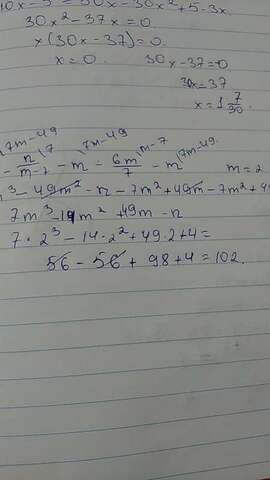 10x - 5 = 30x - 30x² + 5 - 3x
30x² - 37x = 0
x(30x - 37) = 0.
x = 0. 30x - 37 = 0
30x = 37
x = 1 7/30.
7m-49 7 7m-49 m-7 7m-49
- n/m-7 - m - 6m/7 - m m = 2
3 - 49m² - n - 7m² + 49m - 7m² + 4
7m³ - 14m² + 49m - n
7 · 2³ - 14 · 2² + 49 · 2 + 4 =
56 - 56 + 98 + 4 = 102.